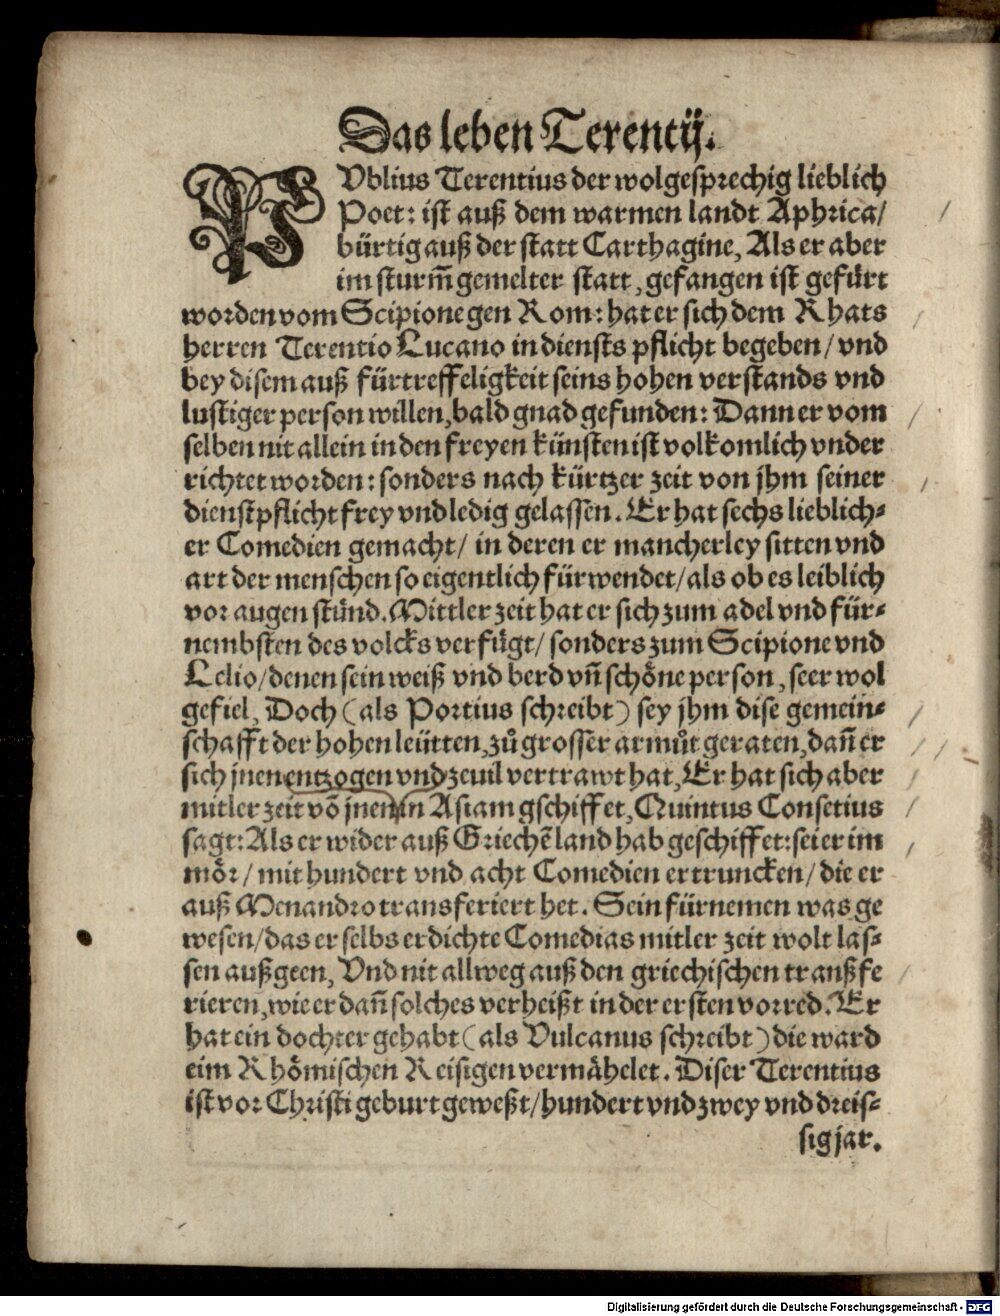 Das leben Terentij.
PVblius Terentius der wolgesprechig lieblich
Poet: ist auß dem warmen landt Aphrica/
bürtig auß der statt Carthagine, Als er aber
im sturm̃ gemelter statt, gefangen ist gefuͤrt
worden vom Scipione gen Rom: hat er sich dem Rhats
herren Terentio Lucano in diensts pflicht begeben/ vnd
bey disem auß fürtreffeligkeit seins hohen verstands vnd
lustiger person willen, bald gnad gefunden: Dann er vom
selben nit allein in den freyen künsten ist volkomlich vnder
richtet worden: sonders nach kürtzer zeit von jhm seiner
dienstpflicht frey vnd ledig gelassen. Er hat sechs lieblich⸗
er Comedien gemacht/ in deren er mancherley sitten vnd
art der menschen so eigentlich fürwendet/ als ob es leiblich
vor augen stuͤnd. Mittler zeit hat er sich zum adel vnd für⸗
nembsten des volcks verfuͤgt/ sonders zum Scipione vnd
Lelio/ denen sein weiß vnd berd vñ schoͤne person, seer wol
gefiel, Doch (als Portius schreibt) sey jhm dise gemein⸗
schafft der hohen leütten, zuͦ grosser armuͦt geraten, dañ er
sich jnen entzogen vnd zeuil vertrawt hat, Er hat sich aber
mitler zeit võ jnen in Asiam gschiffet, Quintus Consetius
sagt: Als er wider auß Griechẽ land hab geschiffet: sei er im
moͤr/ mit hundert vnd acht Comedien ertruncken/ die er
auß Menandro transferiert het. Sein fürnemen was ge
wesen/ das er selbs erdichte Comedias mitler zeit wolt las⸗
sen außgeen, Vnd nit allweg auß den griechischen tranßfe
rieren, wie er dañ solches verheißt in der ersten vorred. Er
hat ein dochter gehabt (als Vulcanus schreibt) die ward
eim Rhoͤmischen Reisigen vermaͤhelet. Diser Terentius
ist vor Christi geburt geweßt/ hundert vnd zwey vnd dreis⸗
sig jar.
Digitalisierung gefördert durch die Deutsche Forschungsgemeinschaft - DFG